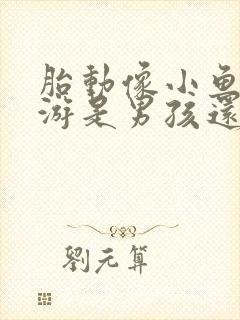 胎動像小魚
游是男孩還
劉元算